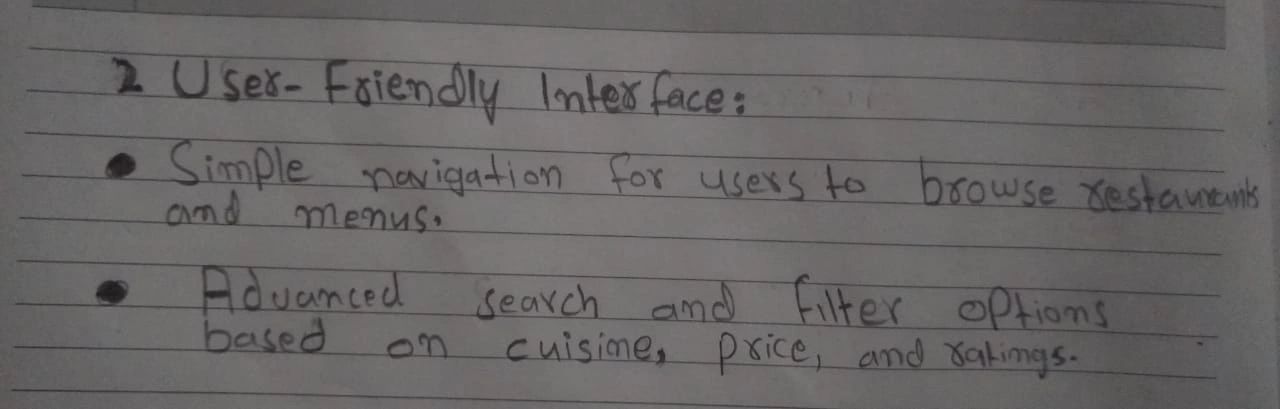 2 User-Friendly Interface:
• Simple navigation for users to browse restaurants
and menus.
• Advanced search and filter options
based on cuisine, price, and ratings.